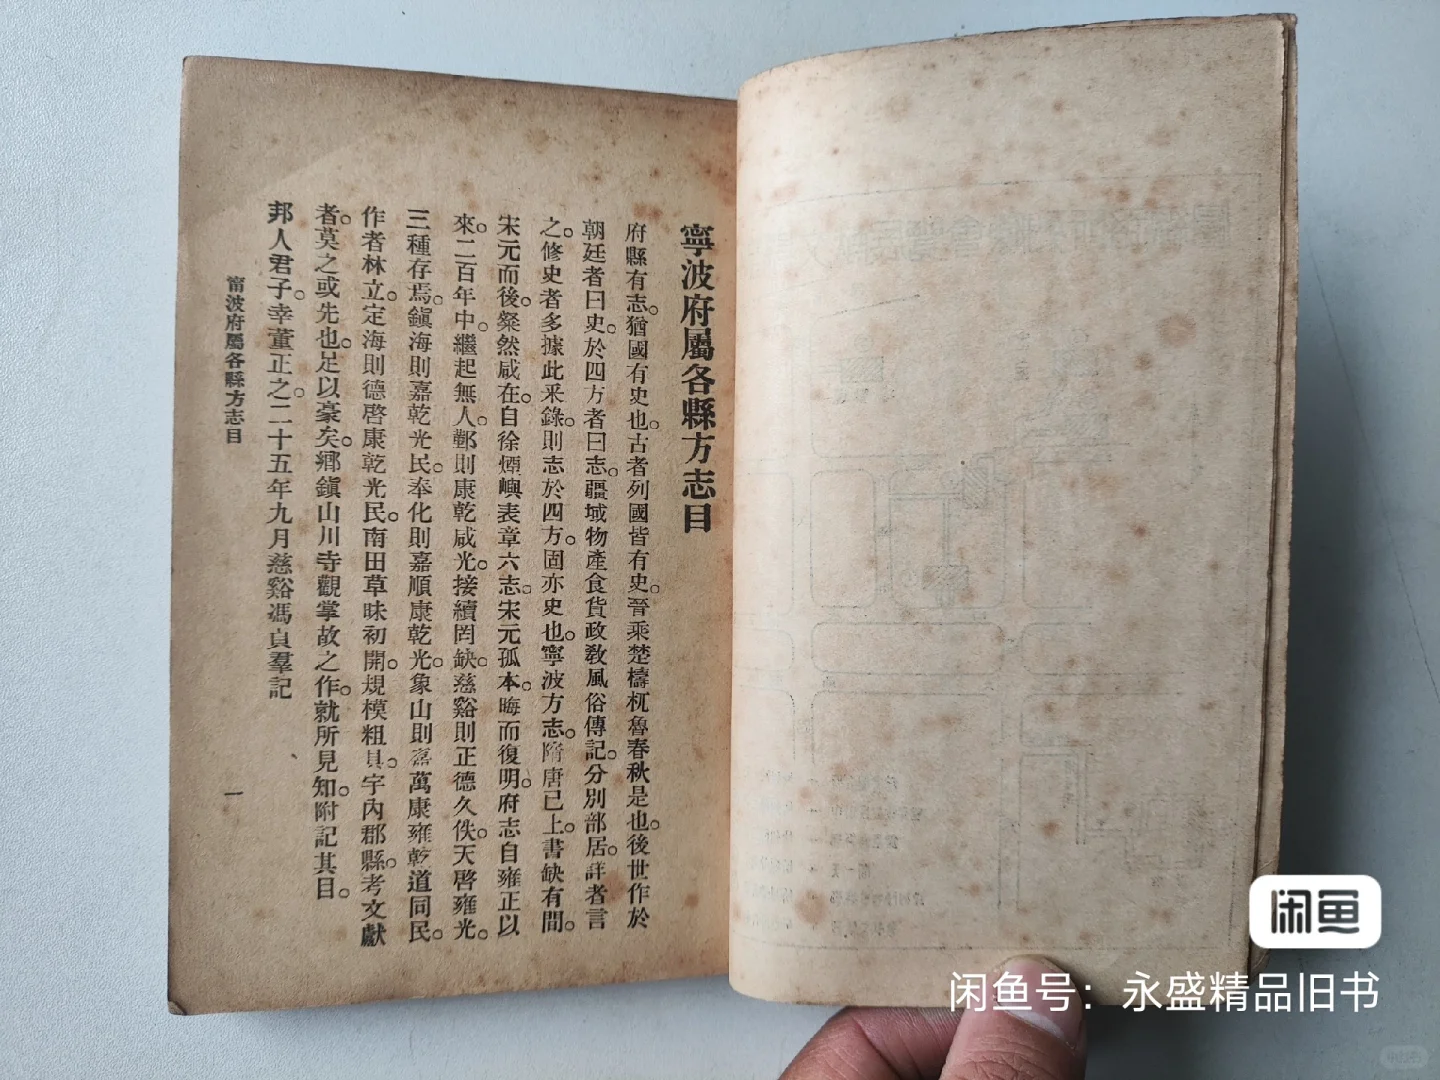 寧波府屬各縣方志目
府縣有志。猶國有史也。古者列國皆有史。晉乘楚檮杌魯春秋是也。後世作於
朝廷者曰史。於四方者曰志。疆域物產食貨政敎風俗傳記。分別部居。詳者言
之。修史者多據此采錄。則志於四方。固亦史也。寧波方志。隋唐已上。書缺有間。
宋元而後。粲然咸在。自徐煙嶼表章六志。宋元孤本。晦而復明。府志自雍正以
來。二百年中。繼起無人。鄞則康乾咸光。接續罔缺。慈谿則正德久佚。天啓雍光。
三種存焉。鎭海則嘉乾光民。奉化則嘉順康乾光。象山則嘉萬康雍乾道同民。
作者林立。定海則德啓康乾光民。南田草昧初開。規模粗具。宇內郡縣。考文獻
者。莫之或先也。足以豪矣。鄉鎭山川寺觀掌故之作。就所見知。附記其目。
邦人君子。幸董正之。二十五年九月慈谿馮貞羣記
甯波府屬各縣方志目
一
闲鱼
闲鱼号：永盛精品旧书